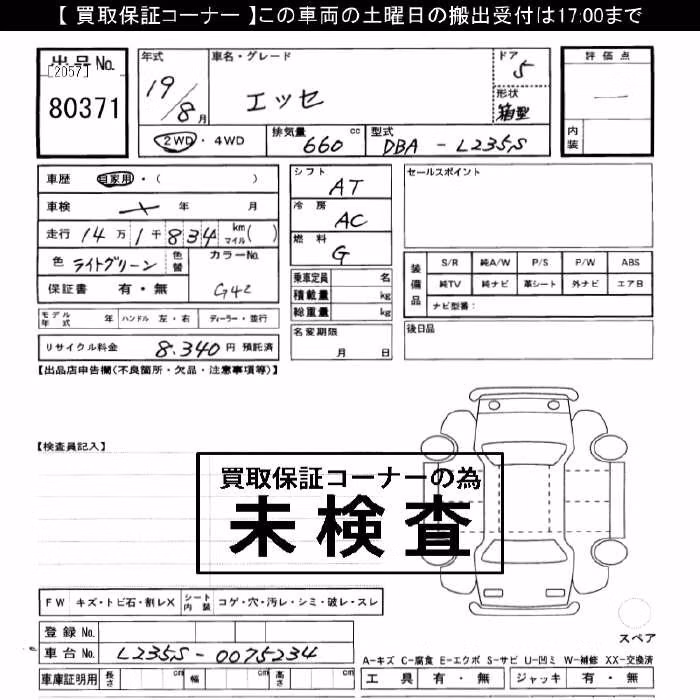 【 買取保証コーナー 】この車両の土曜日の搬出受付は17:00まで
出品No.
[2057]
80371
年式
19/8月
車名・グレード
エッセ
ドア
5
形状
箱型
評価点
―
内装
2WD ・ 4WD
排気量 660 cc
型式 DBA - L235S
車歴 自家用・( )
車検 年 月
走行 14万1千834 km マイル( )
色 ライトグリーン 色替
カラーNo. G42
保証書 有・無
モデル年式 年 ハンドル 左・右 ディーラー・並行
リサイクル料金 8.340 円 預託済
シフト AT
冷房 AC
燃料 G
乗車定員 名
積載量 kg
総重量 kg
名変期限
月 日
セールスポイント
装備品
S/R 純A/W P/S P/W ABS
純TV 純ナビ 革シート 外ナビ エアB
ナビ型番：
後日品
【出品店申告欄(不良箇所・欠品・注意事項等)】
【検査員記入】
買取保証コーナーの為
未検査
FW キズ・トビ石・割レX シート内装 コゲ・穴・汚レ・シミ・破レ・スレ
登録 No.
車台 No. L235S - 0075234
車庫証明用 長さ cm 幅 cm 高さ cm
スペア
A-キズ C-腐食 E-エクボ S-サビ U-凹ミ W-補修 XX-交換済
工具 有・無 ジャッキ 有・無